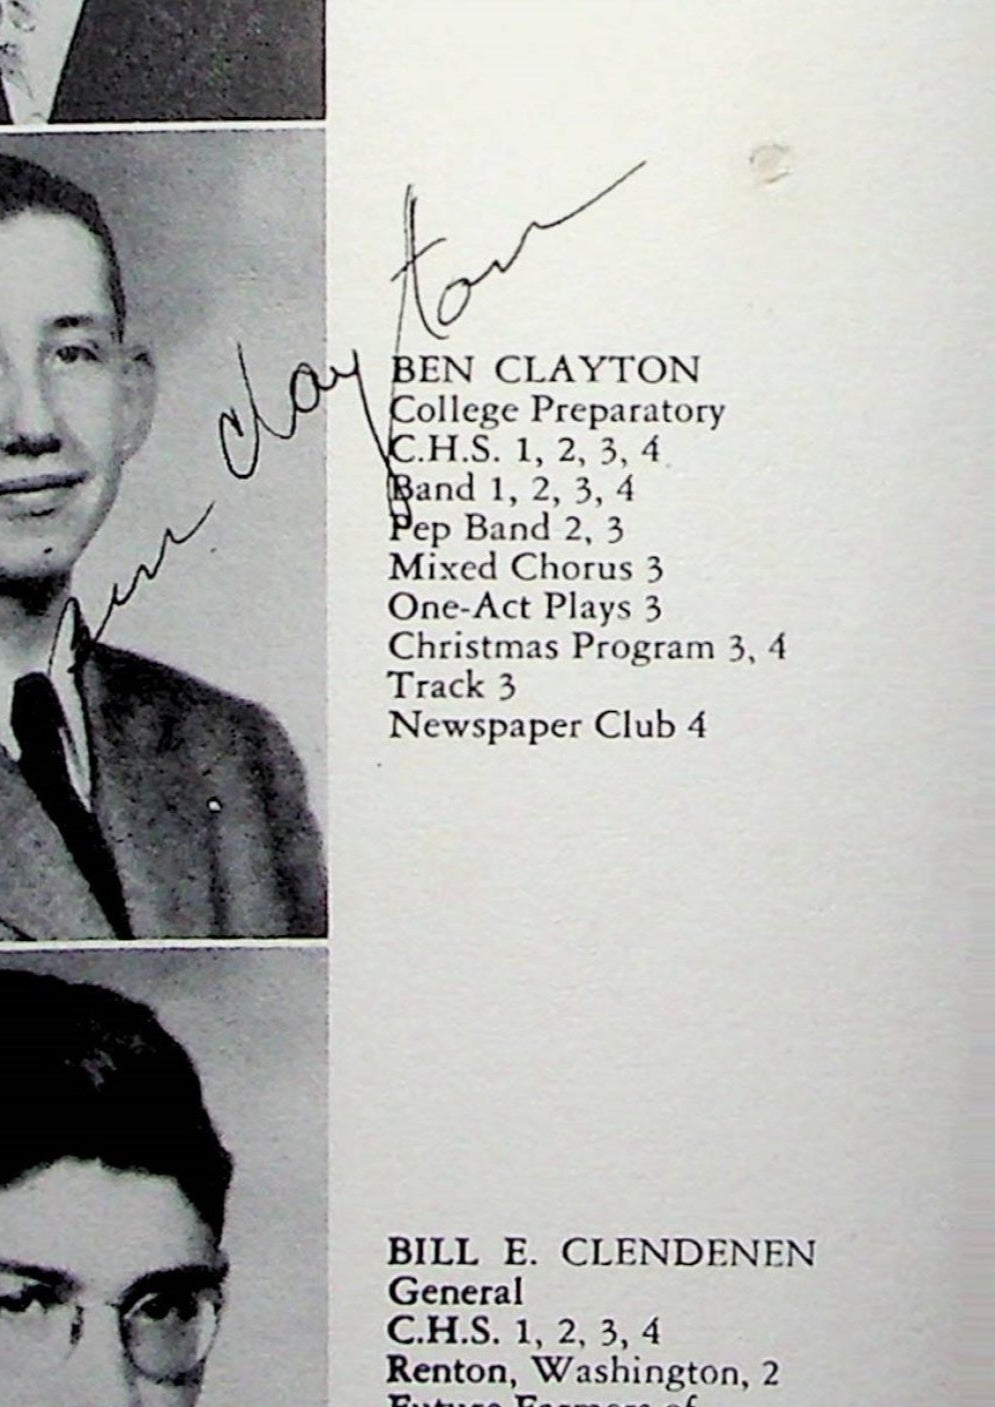 Ben Clayton
BEN CLAYTON
College Preparatory
C.H.S. 1, 2, 3, 4
Band 1, 2, 3, 4
Pep Band 2, 3
Mixed Chorus 3
One-Act Plays 3
Christmas Program 3, 4
Track 3
Newspaper Club 4
BILL E. CLENDENEN
General
C.H.S. 1, 2, 3, 4
Renton, Washington, 2
Future Farmers of